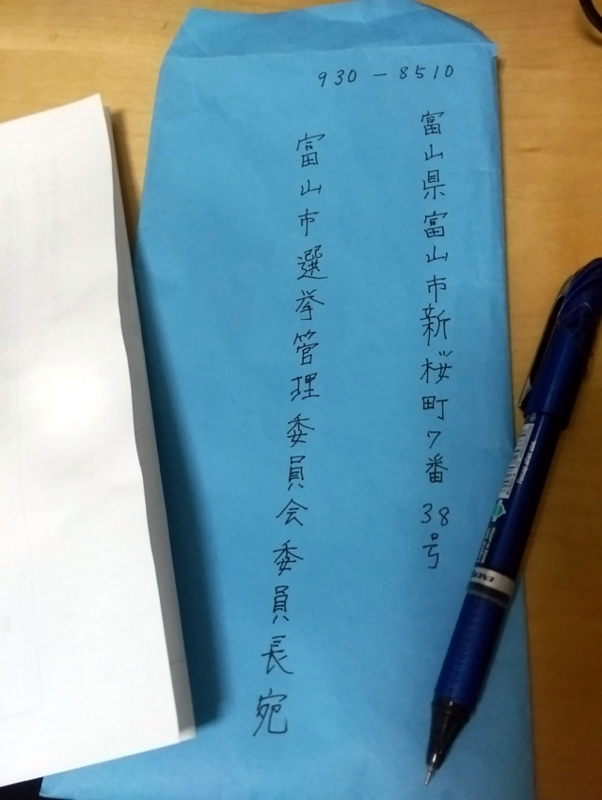 930-8510
富山県富山市新桜町7番38号
富山市選挙管理委員会委員長宛